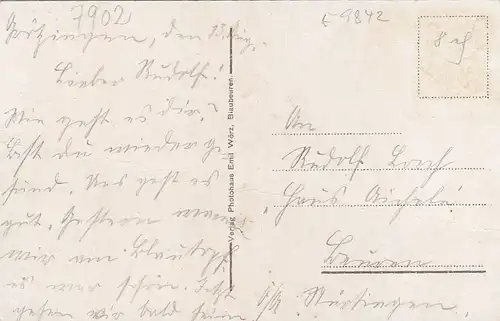 7902
E 9842
Lieber Rudolf!
Wie geht es dir?
Bist du wieder ge-
sund. Uns geht es
gut. Gestern waren
wir am Blautopf
es war schön. Jetzt
gehen wir bald heim
Verlag Photohaus Emil Wörz, Blaubeuren
An
Rudolf
Haus Aichele
Beuren
Nürtingen.